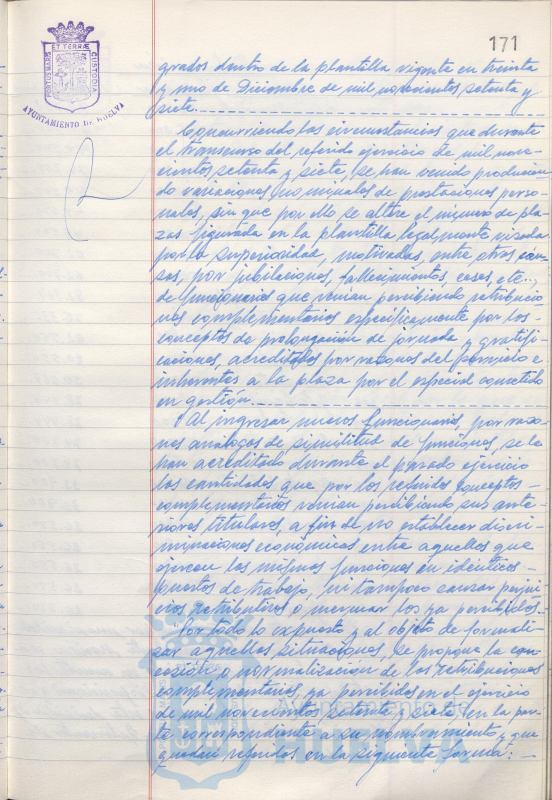 171
PORTUS MARIS
ET TERRÆ
CUSTODIA
AYUNTAMIENTO DE HUELVA
grados dentro de la plantilla vigente en treinta
y uno de Diciembre de mil novecientos setenta y
siete.
Concurriendo las circunstancias que durante
el transcurso del referido ejercicio de mil nove-
cientos setenta y siete, se han venido producien-
do variaciones nominales de prestaciones perso-
nales, sin que por ello se altere el número de pla-
zas figurada en la plantilla legalmente visada
por la superioridad, motivadas, entre otras cau-
sas, por jubilaciones, fallecimientos, ceses, etc..,
de funcionarios que venían percibiendo retribucio-
nes complementarias específicamente por los-
conceptos de prolongación de jornada y gratifi-
caciones, acreditados por razones del servicio e
inherentes a la plaza por el especial cometido
en gestión.
Al ingresar nuevos funcionarios, por razo-
nes análogas de similitud de funciones, se le
han acreditado durante el pasado ejercicio
las cantidades que por los referidos conceptos-
complementarios venían percibiendo sus ante-
riores titulares, a fin de no establecer discri-
minaciones económicas entre aquellos que
ejercen las mismas funciones en idénticos-
puestos de trabajo, ni tampoco causar perjui-
cios retributivos o mermar los ya percibidos.-
Por todo lo expuesto y al objeto de formali-
zar aquellas situaciones, se propone la con-
cesión o normalización de las retribuciones
complementarias, ya percibidas en el ejercicio
de mil novecientos setenta y siete, en la par-
te correspondiente a su nombramiento y que
quedan referidos en la siguiente forma: -
Ayuntamiento de
HUELVA